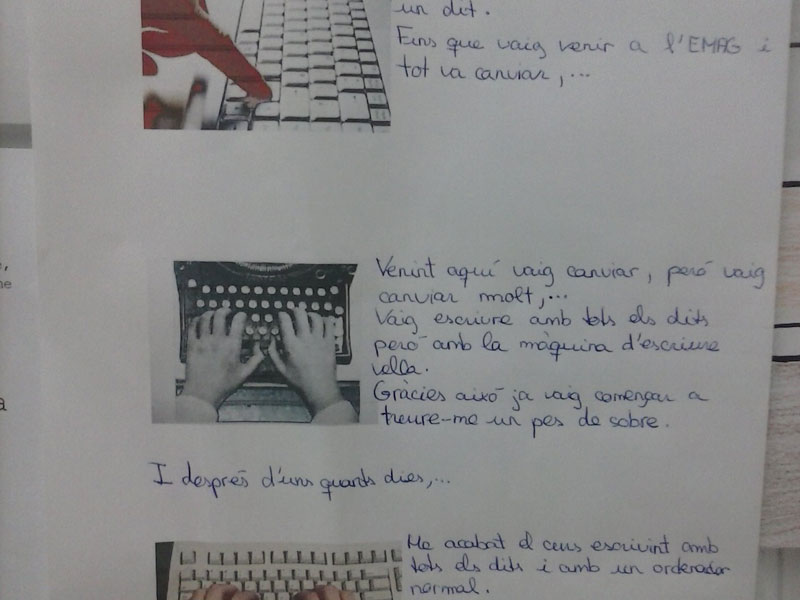 un dit.
Fins que vaig venir a l'EMAG i
tot va canviar,...
Venint aquí vaig canviar, però vaig
canviar molt,...
Vaig escriure amb tots els dits
però amb la màquina d'escriure
vella.
Gràcies això ja vaig començar a
treure-me un pes de sobre.
I després d'uns quants dies,...
He acabat el curs escrivint amb
tots els dits i amb un ordenador
normal.